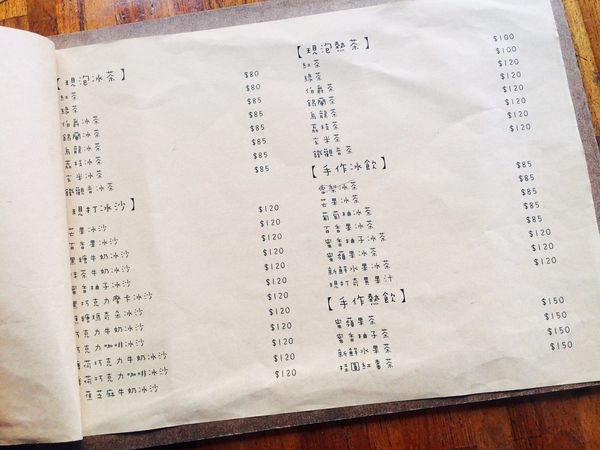 【現泡冰茶】
紅茶 $80
綠茶 $80
伯爵冰茶 $85
錫蘭冰茶 $85
烏龍冰茶 $85
荔枝冰茶 $85
玄米冰茶 $85
鐵觀音冰茶 $85
現打冰沙】
芒果冰沙 $120
百香果冰沙 $120
黑糖牛奶冰沙 $120
抹茶牛奶冰沙 $120
蜜香柚子冰沙 $120
黑巧克力摩卡冰沙 $120
焦糖瑪奇朵冰沙 $120
巧克力牛奶冰沙 $120
巧克力咖啡冰沙 $120
薄荷巧克力牛奶冰沙 $120
薄荷巧克力咖啡冰沙 $120
蕉芝麻牛奶冰沙 $120
【現泡熱茶】
紅茶 $100
綠茶 $100
伯爵茶 $120
錫蘭茶 $120
烏龍茶 $120
荔枝茶 $120
玄米茶 $120
鐵觀音茶 $120
【手作冰飲】
雪梨冰茶 $85
芒果冰茶 $85
葡萄柚冰茶 $85
百香果冰茶 $85
蜜香柚子冰茶 $85
蜜蘋果冰茶 $85
新鮮水果冰茶 $120
現打奇異果汁 $120
【手作熱飲】
蜜蘋果茶 $150
蜜香柚子茶 $150
新鮮水果茶 $150
桂圓紅棗茶 $150